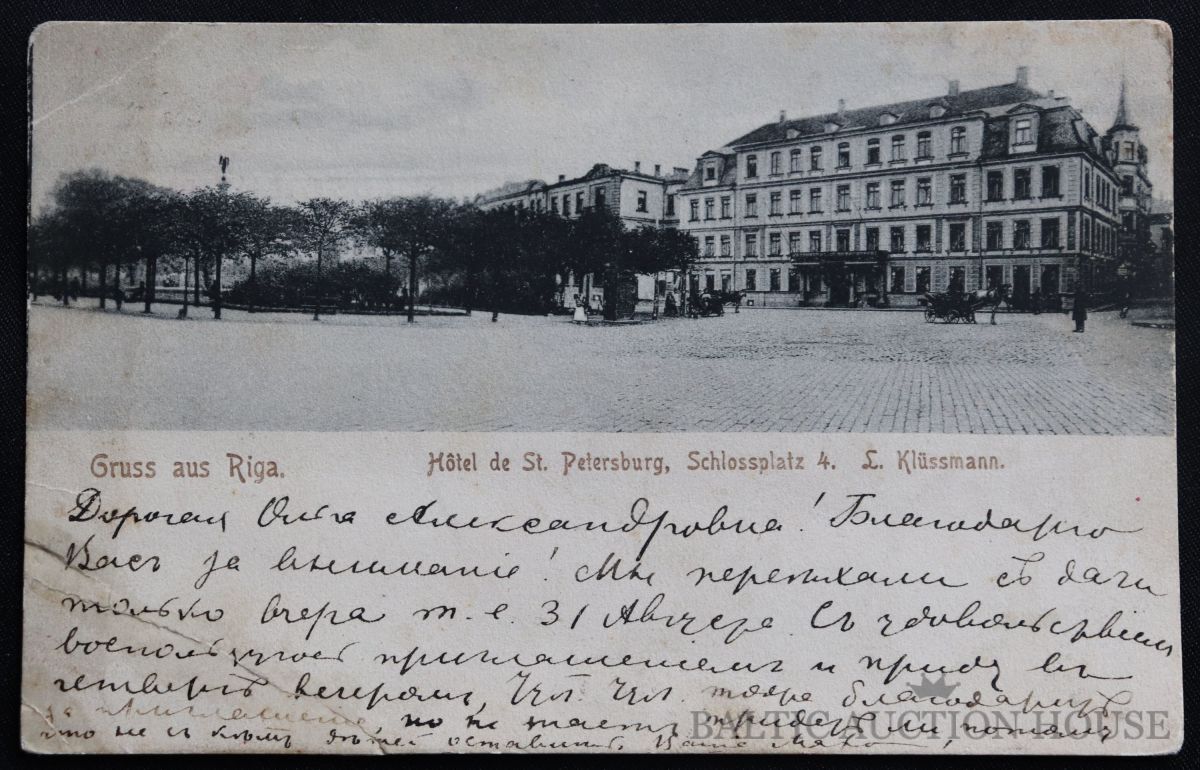 Gruss aus Riga.
Hôtel de St. Petersburg, Schlossplatz 4. L. Klüssmann.
Дорогая Ольга Александровна! Благодарю
Васъ за вниманіе! Мы переѣхали съ дачи
только вчера т. е. 31 Августа. Съ удовольствіемъ
воспользуюсь приглашеніемъ и приду въ
четвергъ вечеромъ, благодаритъ
за приглашеніе, но не знаетъ придетъ ли потому
что не съ кѣмъ дѣтей оставить. Ваша
BALTIC AUCTION HOUSE